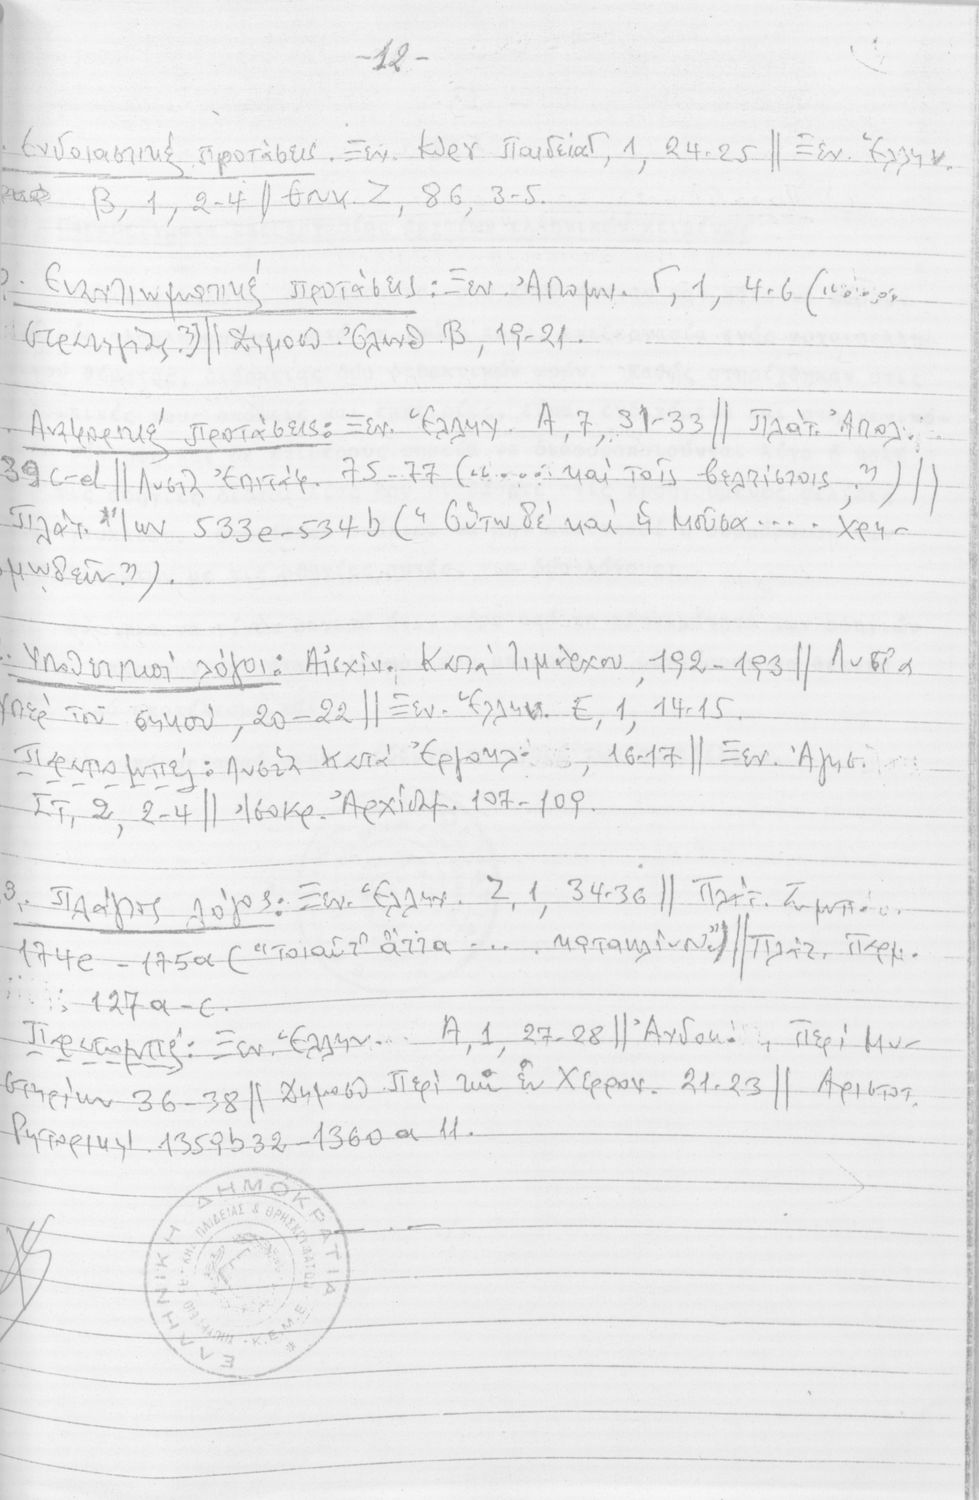 -12-
. Ενδοιαστικές προτάσεις. Ξεν. Κύρ. Παιδεία Γ, 1, 24-25 || Ξεν. Ἑλλην.
Β, 1, 2-4 || Θουκ. Ζ, 86, 3-5.
. Εναντιωματικές προτάσεις: Ξεν. Ἀπομν. Γ, 1, 4-6 (
στρατηγίας") || Δημοσθ. Ὀλυνθ. Β, 19-21.
. Αναφορικές προτάσεις: Ξεν. Ἑλλην. Α, 7, 31-33 || Πλάτ. Ἀπολ.
39 c-e || Λυσία Ἐπιτάφ. 75-77 ("..... καί τοῖς βελτίστοις,") ||
Πλάτ. Ἴων 533e-534b (" Οὕτω δέ καί ἡ Μοῦσα ..... χρη-
μωδεῖν").
. Υποθετικοί λόγοι: Αἰσχίν. Κατά Τιμάρχου, 192-193 || Λυσία
Υπέρ τοῦ σηκοῦ, 20-22 || Ξεν. Ἑλλην. Ε, 1, 14-15.
Παραπομπές: Λυσία Κατά Ἐργοκλ. , 16-17 || Ξεν. Ἀγησ.
ΣΤ, 2, 2-4 || Ἰσοκρ. Ἀρχίδαμ. 107-109.
3. Πλάγιος λόγος: Ξεν. Ἑλλην. Ζ, 1, 34-36 || Πλάτ. Συμπόσ.
174e-175a ("τοιαῦτ' ἄττα .... κατακλίνου") || Πλάτ. Παρμ.
127a-c.
Παραπομπές: Ξεν. Ἑλλην. Α, 1, 27-28 || Ἀνδοκ. , Περί Μυ-
στηρίων 36-38 || Δημοσθ. Περί τῶν ἐν Χερρον. 21-23 || Αριστοτ.
Ρητορική 1359b32-1360a 11.
ΕΛΛΗΝΙΚΗ ΔΗΜΟΚΡΑΤΙΑ
ΠΑΙΔΕΙΑΣ & ΘΡΗΣΚΕΥΜΑΤΩΝ
Κ.Ε.Μ.Ε.